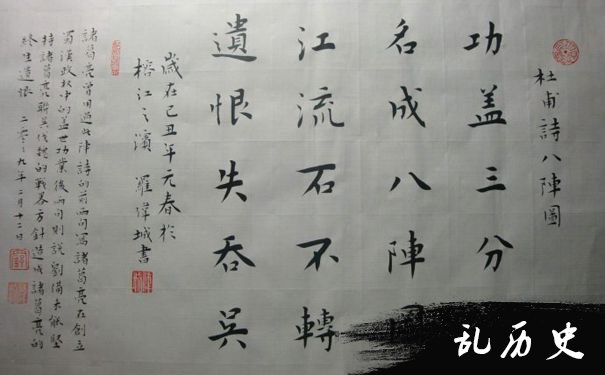 杜甫詩八陣圖
功盖三分
名成八陣
江流石不轉
遺恨失吞吳
歲在己丑年元春於
榕江之濱 羅偉城書
諸葛亮曾用過此陣詩的前兩句寫諸葛亮在創立
蜀漢政权中的盖世功業後兩句則說劉備未能堅
持諸葛亮聯吳伐魏的戰畧方針造成諸葛亮的
終生遺恨 二零零九年二月十二日
乱历史